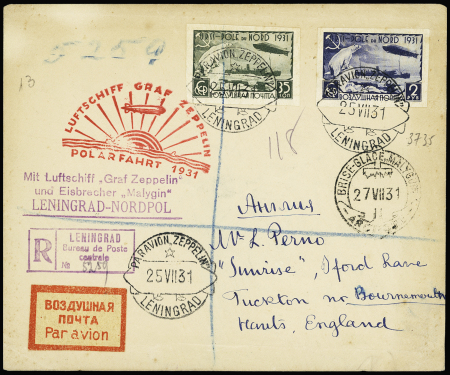 5259
13
ПОЛЕ DU NORD 1931
35
ПОЧТА
POLE DU NORD 1931
ВОЗДУШНАЯ ПОЧТА
2
PAR AVION "ZEPPELIN"
25 VII 31
LENINGRAD
PAR AVION "ZEPPELIN"
25 VII 31
LENINGRAD
LUFTSCHIFF GRAF ZEPPELIN
POLARFAHRT 1931
118
3735
BRISE-GLACE "MALYGUIN"
27 VII 31
Mit Luftschiff „Graf Zeppelin"
und Eisbrecher „Malygin"
LENINGRAD-NORDPOL
R
LENINGRAD
Bureau de Poste
centrale
№ 5259
PAR AVION "ZEPPELIN"
25 VII 31
LENINGRAD
Mr L. Perno
"Sunrise", Iford Lane
Tuckton nr Bournemouth
Hants, England
ВОЗДУШНАЯ
ПОЧТА
Par avion